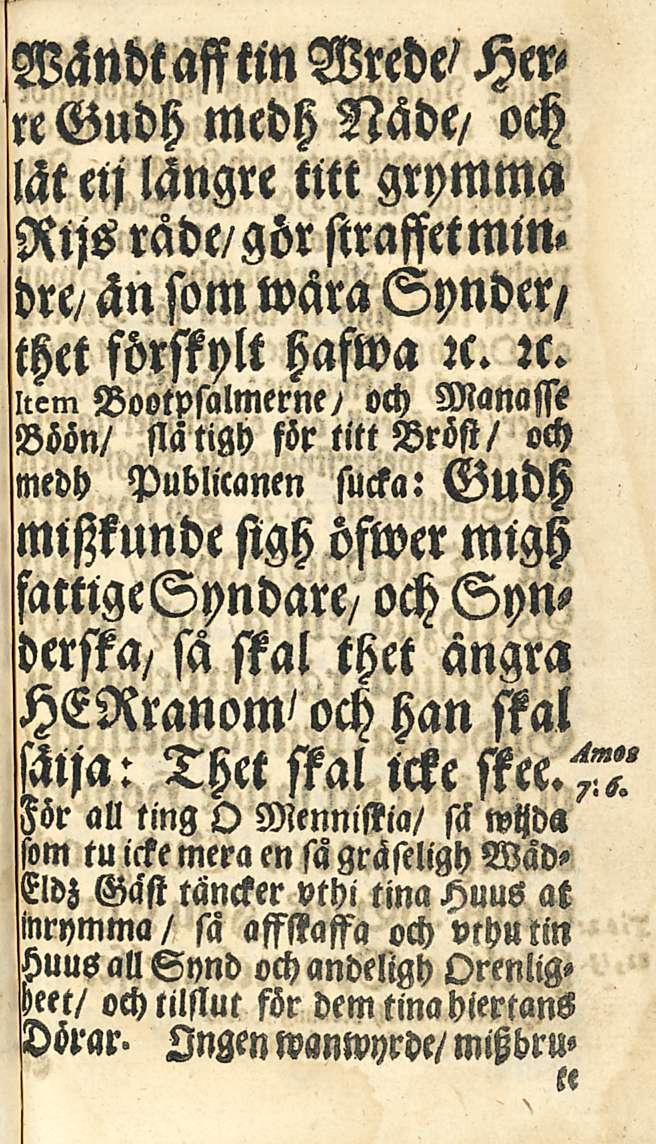 Wändt aff tin Wrede/ Her⸗
re Gudh medh Nåde/ och
låt eij längre titt grymma
Rijs råde/ gör straffet min⸗
dre/ än som wåra Synder/
thet förskylt hafwa ꝛc. ꝛc.
Item Bootpsalmerne/ och Manasse
Böön/ slå tigh för titt Bröst/ och
medh Publicanen sucka: Gudh
mißkunde sigh öfwer migh
fattige Syndare/ och Syn⸗
derska/ så skal thet ångra
HERranom/ och han skal
säija: Thet skal icke skee.
Amos
7: 6.
För all ting O Menniskia/ så wijda
som tu icke mera en så gräseligh Wåd⸗
Eldz Gäst täncker vthi tina Huus at
inrymma/ så affskaffa och vthu tin
Huus all Synd och andeligh Orenlig⸗
heet/ och tilslut för dem tina hiertans
Dörar. Ingen wanwyrde/ mißbru⸗
ke